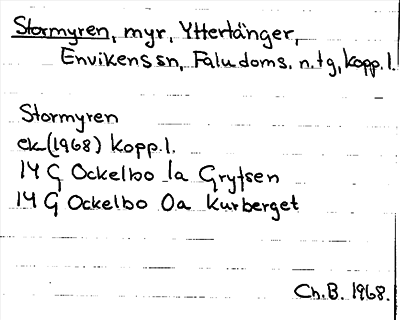 Stormyren, myr, Yttertänger,
Envikens sn, Falu doms. n. tg, Kopp. l.
Stormyren
ek (1968) Kopp. l.
14 G Ockelbo 1a Grytsen
14 G Ockelbo 0a Kurberget
Ch. B. 1968.